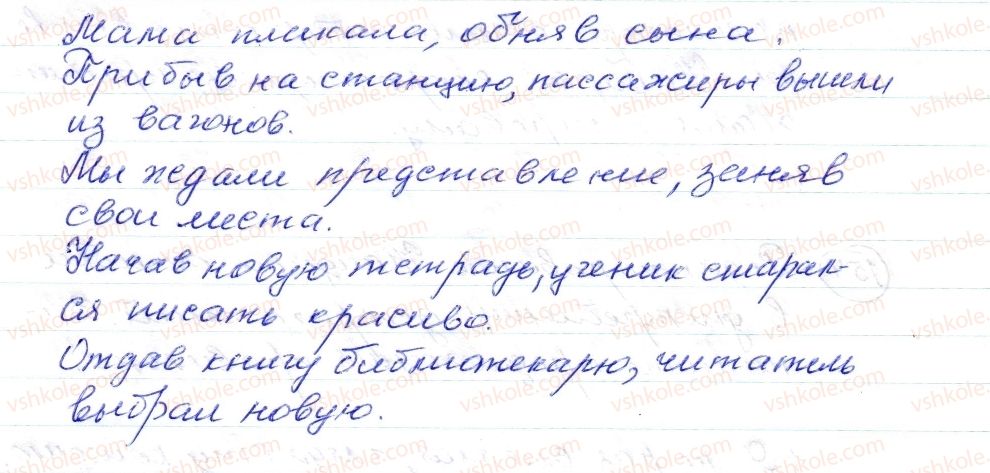 Мама плакала, обняв сына.
Прибыв на станцию, пассажиры вышли
из вагонов.
Мы ждали представление, заняв
свои места.
Начав новую тетрадь, ученик старал-
ся писать красиво.
Отдав книгу библиотекарю, читатель
выбрал новую.